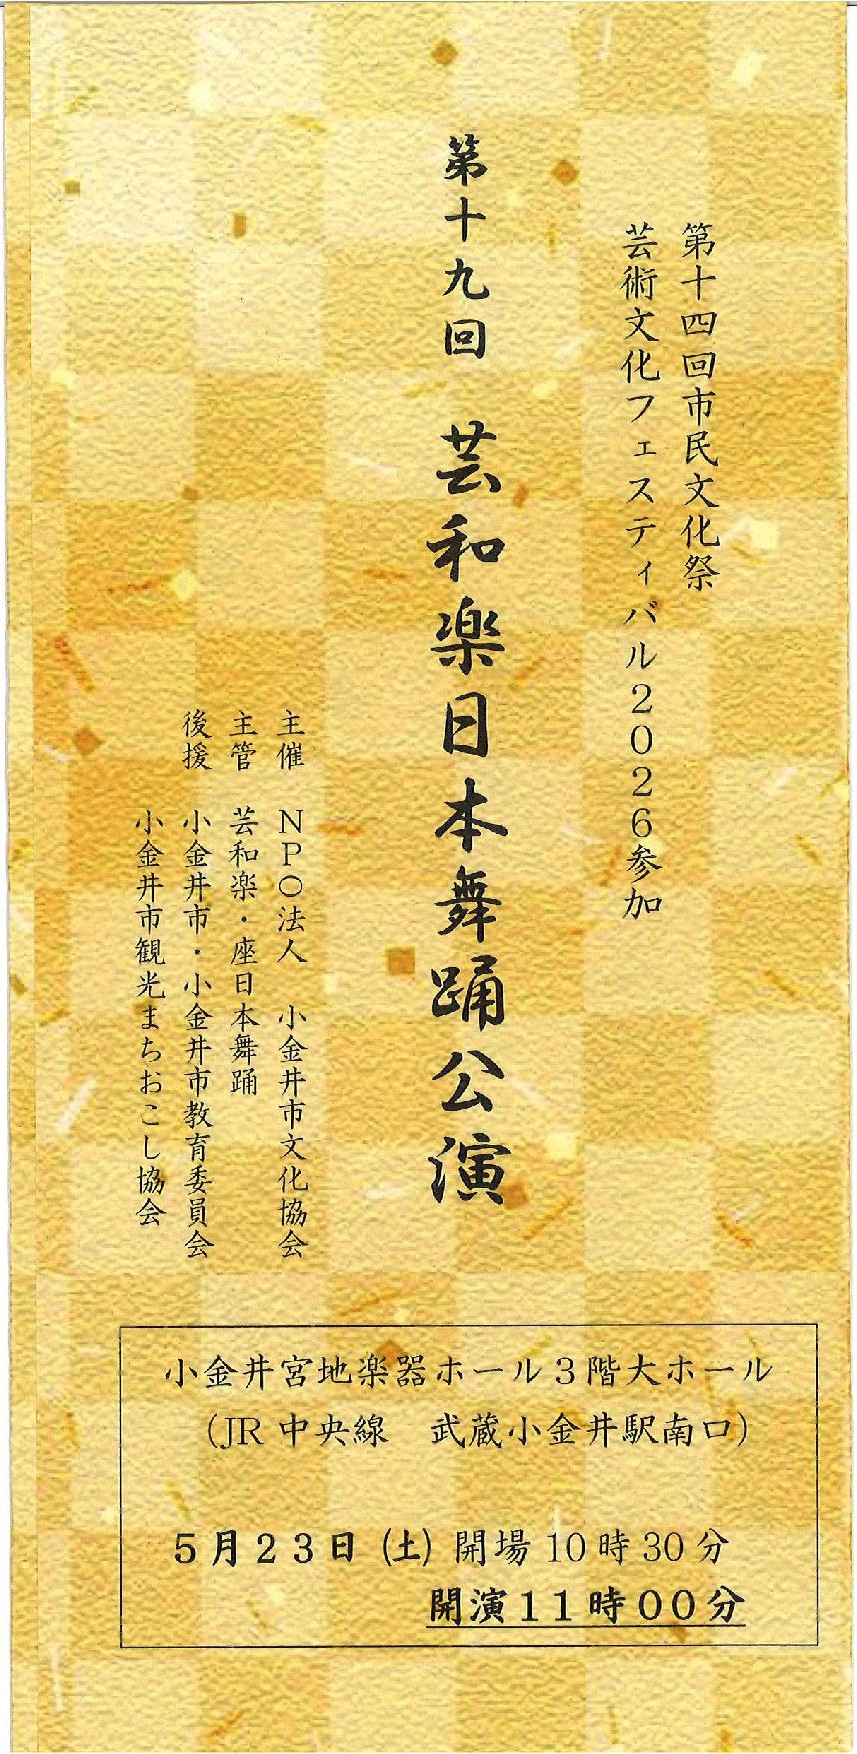 第十四回市民文化祭
芸術文化フェスティバル２０２６参加
第十九回　芸和楽日本舞踊公演
主催　ＮＰＯ法人　小金井市文化協会
主管　芸和楽・座日本舞踊
後援　小金井市・小金井市教育委員会
小金井市観光まちおこし協会
小金井宮地楽器ホール３階大ホール
（JR 中央線　武蔵小金井駅南口）
５月２３日（土）開場 10 時 30 分
開演１１時００分